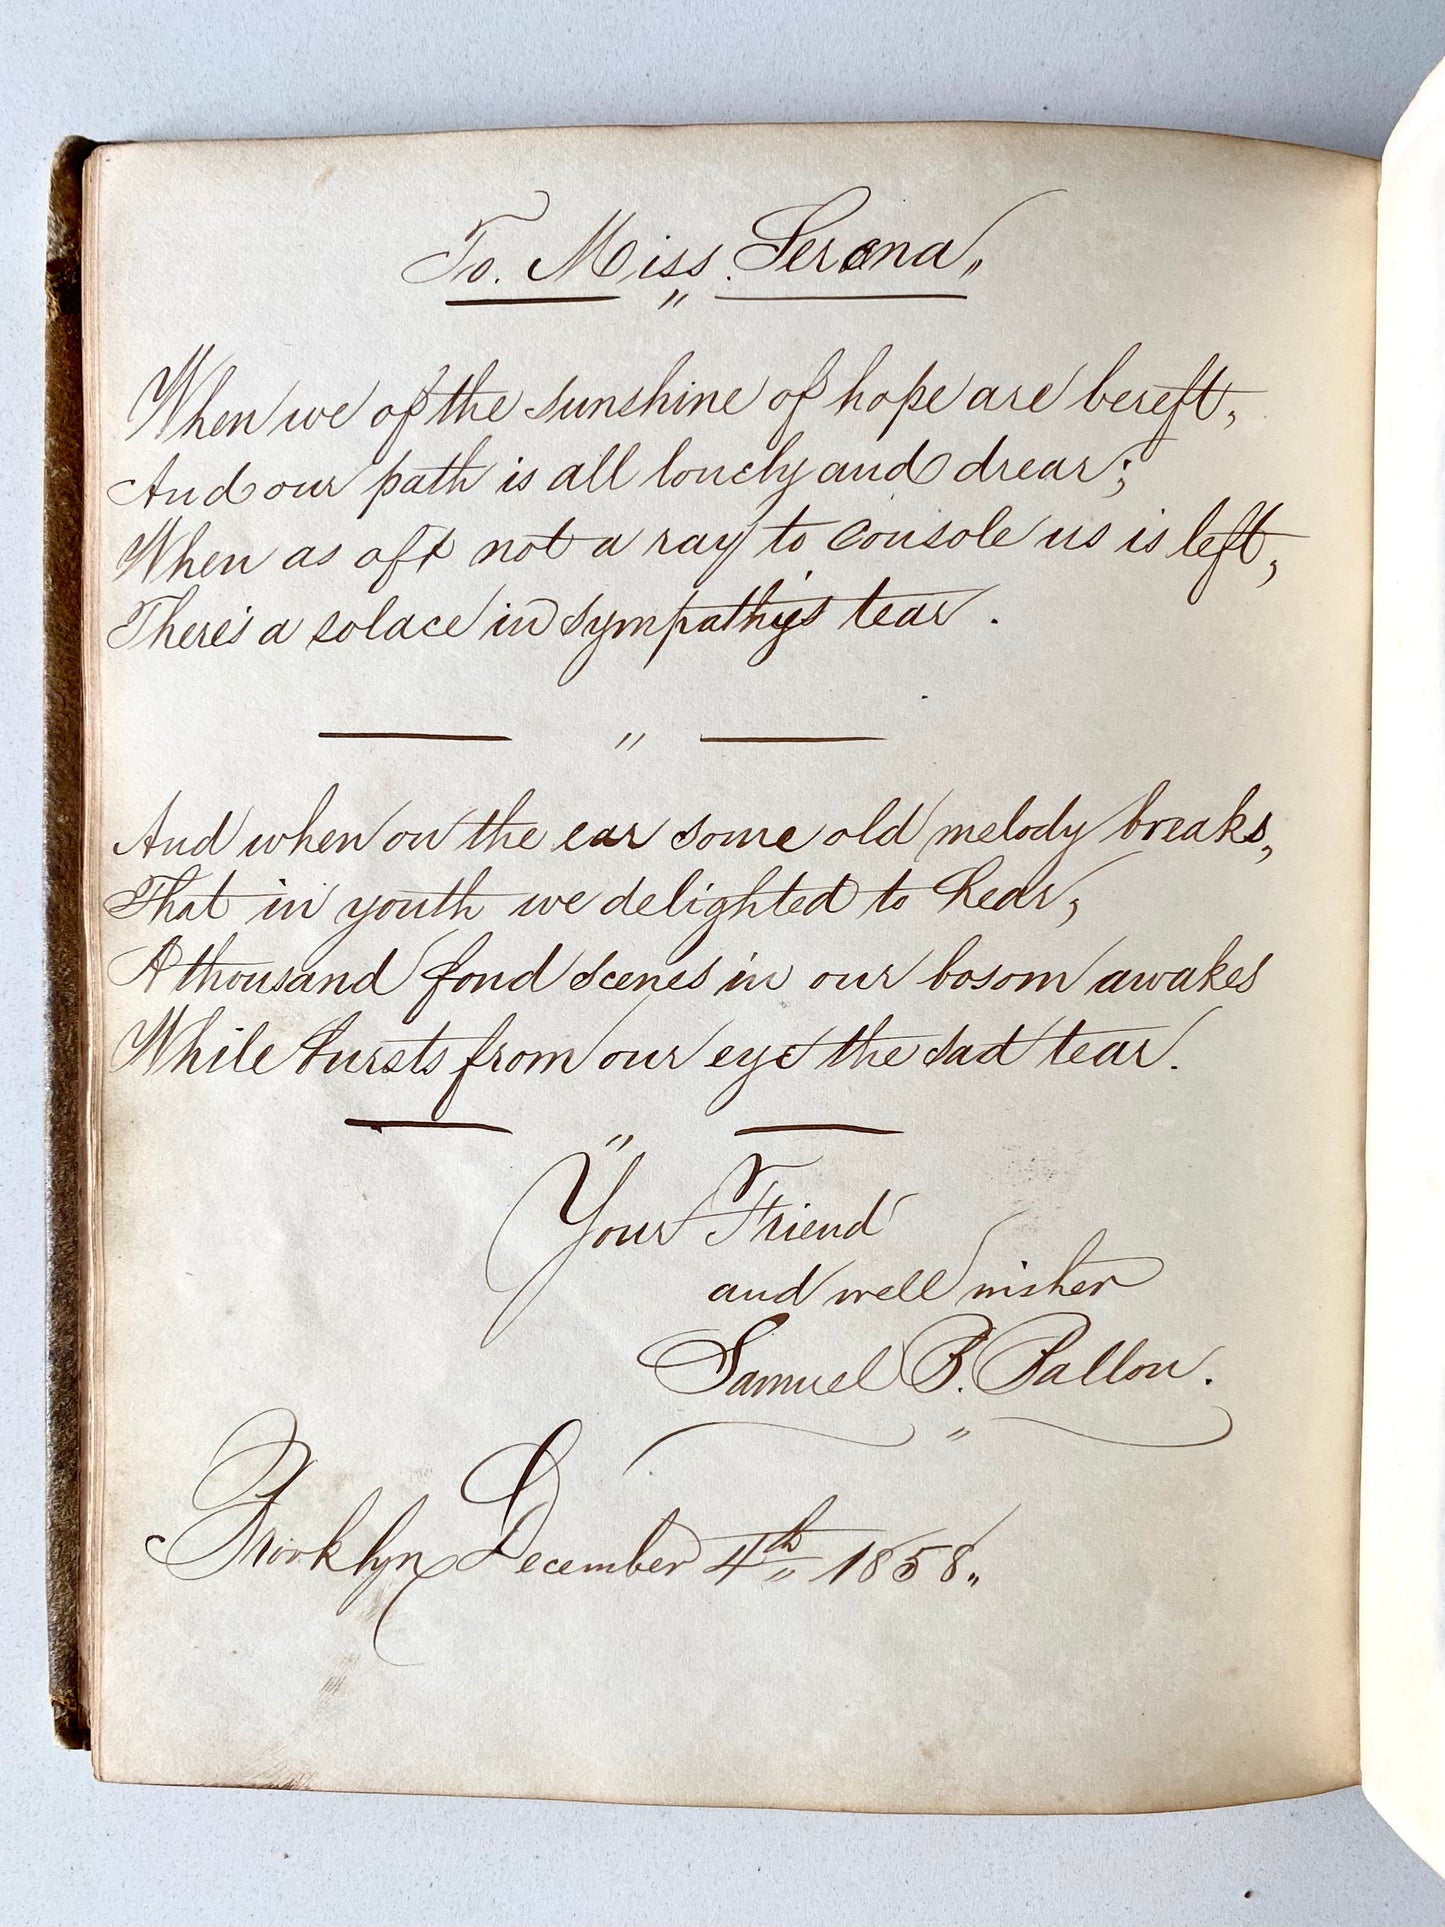 To. Miss. Serena,,
When we of the sunshine of hope are bereft,
And our path is all lonely and drear;
When as oft not a ray to console us is left,
There's a solace in sympathy's tear.
And when on the ear some old melody breaks,
That in youth we delighted to hear,
A thousand fond scenes in our bosom awakes
While bursts from our eye the sad tear.
Your Friend
and well wisher
Samuel B. Ballou.
Brooklyn December 4th,, 1858,,